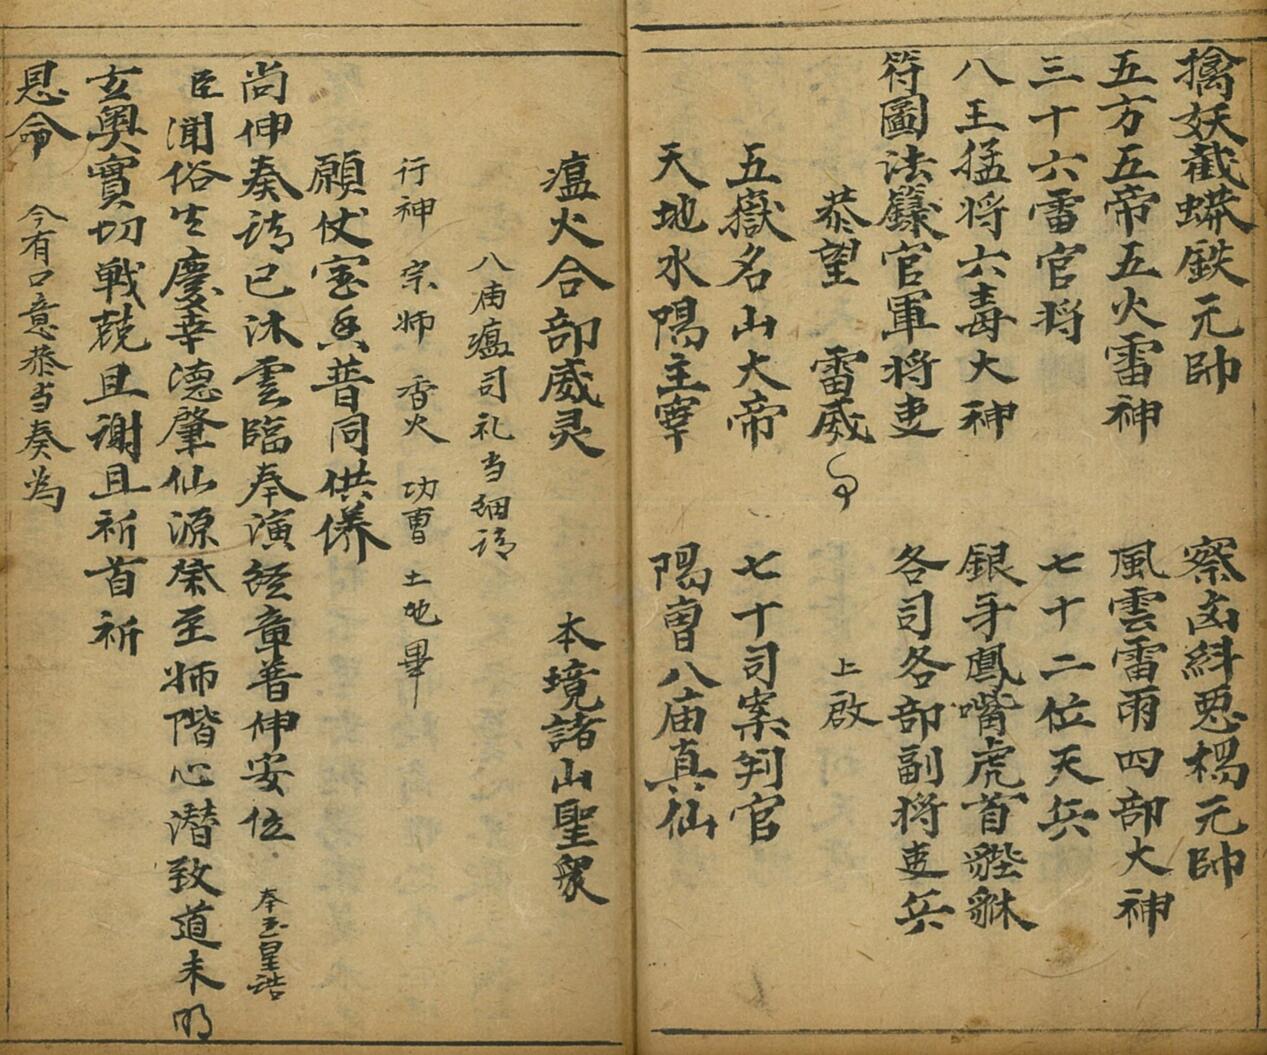 擒妖截蟒鉄元帥　察凶糾惡楊元帥
五方五帝五火雷神　風雲雷雨四部大神
三十六雷官将　七十二位天兵
八王猛将六毒大神　銀牙鳳嘴虎首豼貅
符圖法籙官軍将吏　各司各部副将吏兵
恭望　雷威　上啟
五嶽名山大帝　七十司案判官
天地水陽主宰　陽曹八庙真仙
瘟火合部威灵　本境諸山聖衆
八庙瘟司礼当細請
行神　宗师　香火　功曹　土地畢
願仗宝香普同供養
尚伸奏請已沐雲臨奉演經章普伸安位　奉玉皇誥
臣闻俗生慶幸德肇仙源忝至师階心潜致道未明
玄奥實切戦兢且謝且祈首祈
恩命　今有口意恭当奏为